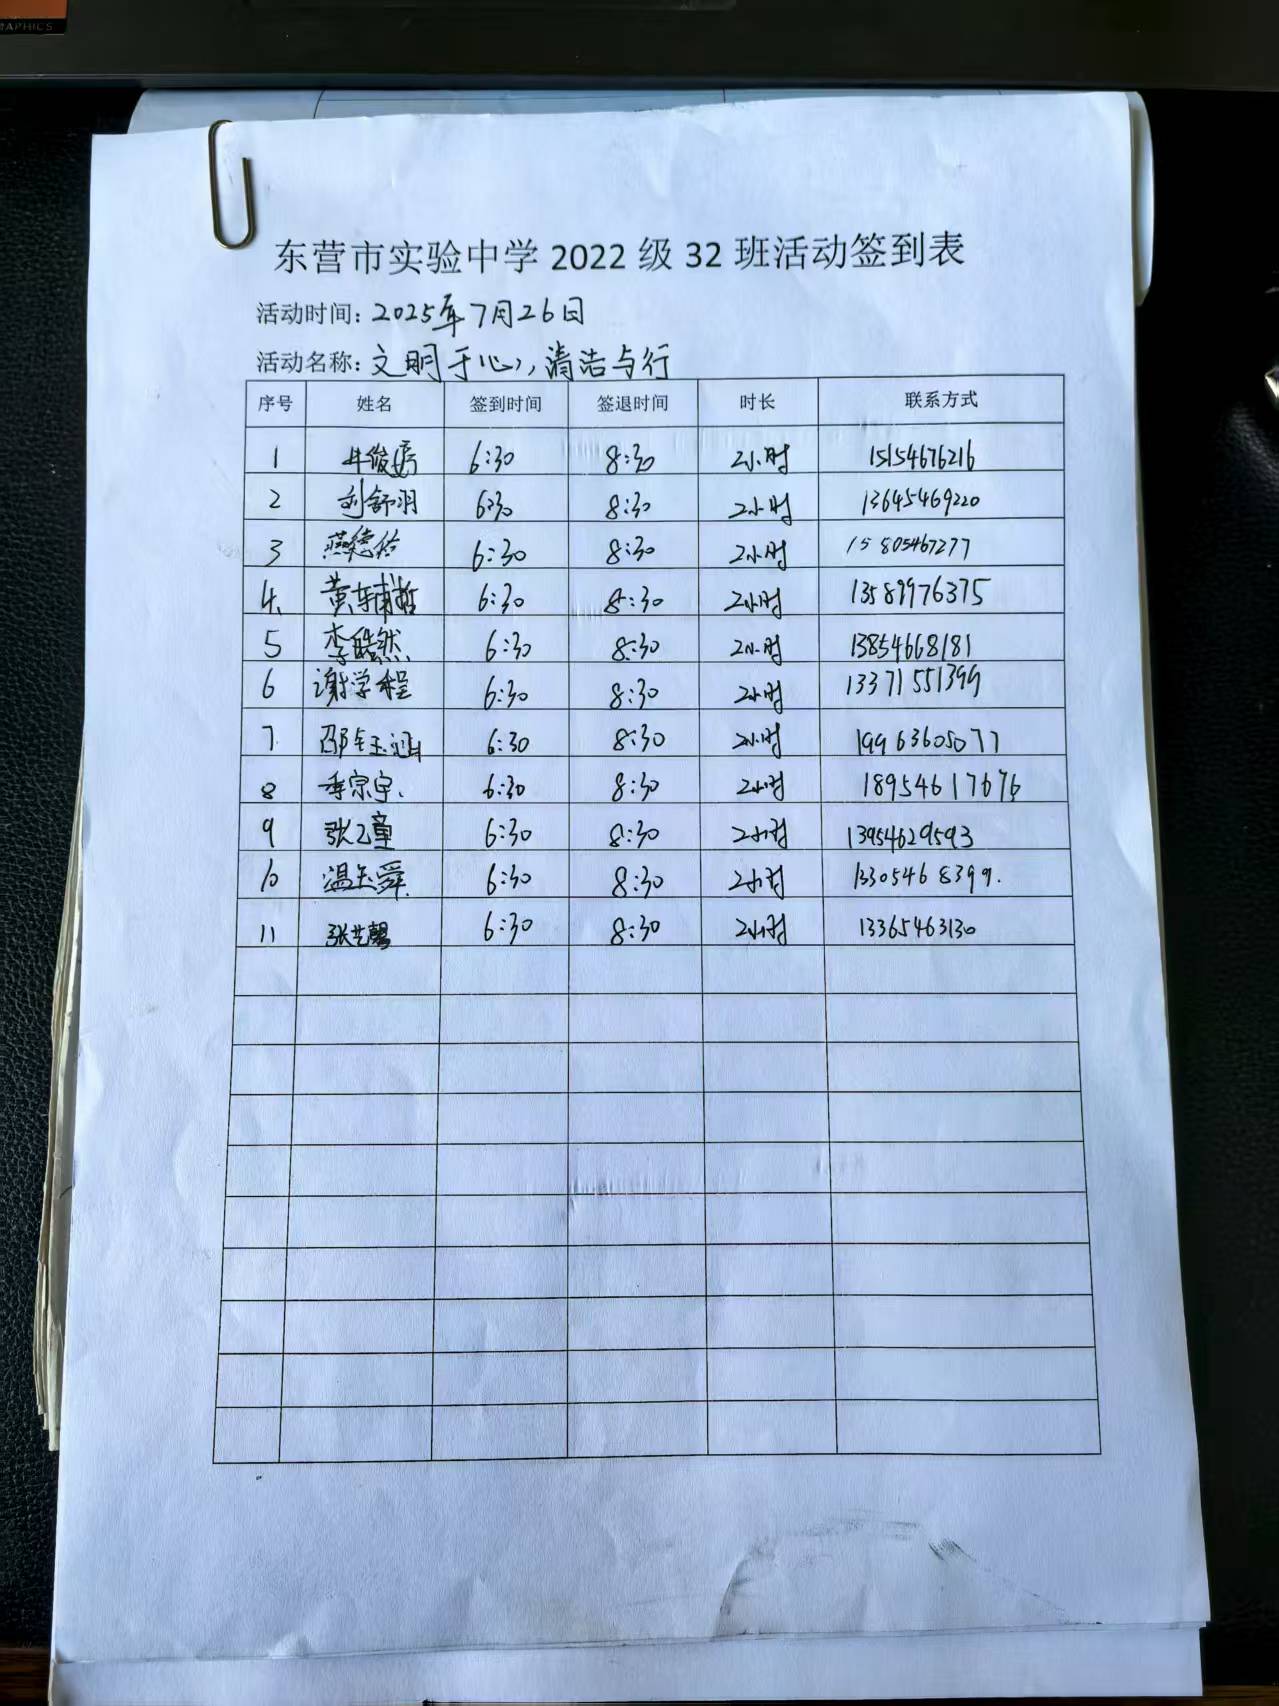 GRAPHICS
东营市实验中学 2022 级 32 班活动签到表
活动时间: 2025年7月26日
活动名称: 文明于心,清洁与行
序号 姓名 签到时间 签退时间 时长 联系方式
1 6:30 8:30 2小时 15154676216
2 刘舒羽 6:30 8:30 2小时 13645469220
3 燕德佑 6:30 8:30 2小时 15805467277
4. 黄东甫哲 6:30 8:30 2小时 13589976375
5 李皓然 6:30 8:30 2小时 13854668181
6 谢学程 6:30 8:30 2小时 13371551399
7. 邵钰涵 6:30 8:30 2小时 19963605077
8 季宗宇. 6:30 8:30 2小时 18954617676
9 张乙童 6:30 8:30 2小时 13954629593
10 温玉舜. 6:30 8:30 2小时 13305468399.
11 张艺馨 6:30 8:30 2小时 13365463130